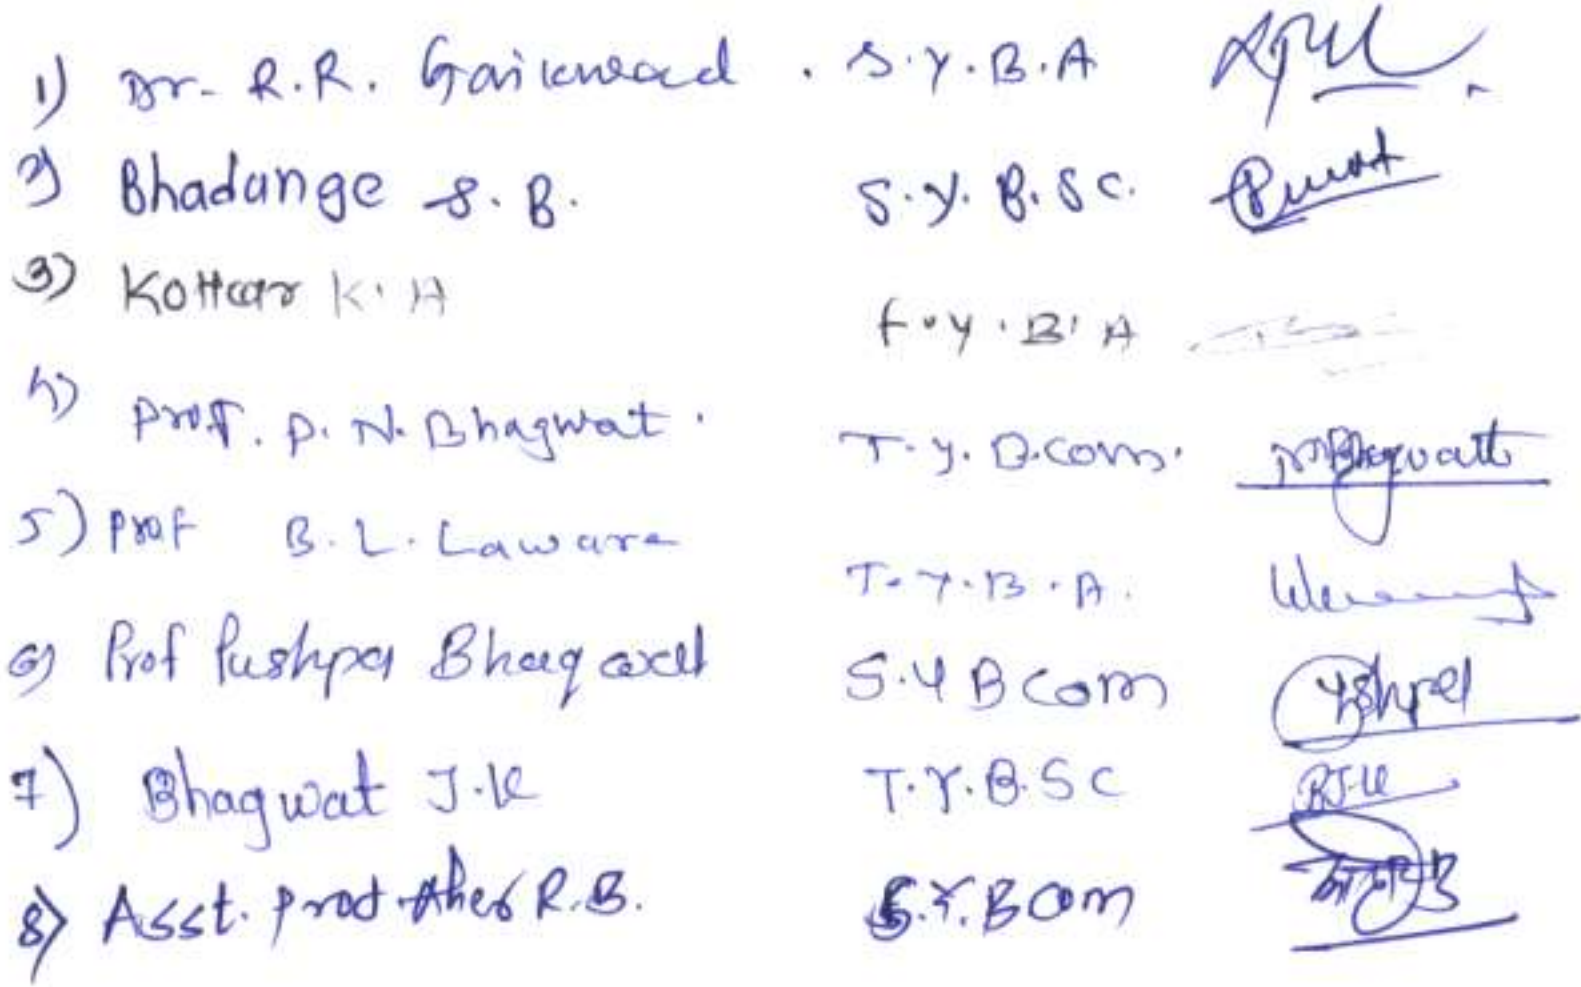 1) Dr. R.R. Gaikwad . S.Y.B.A
2) Bhadange S.B. S.Y.B.Sc.
3) Kottar K.A F.Y.B.A
4) Prof. P.N. Bhagwat. T.Y.B.Com.
5) Prof B.L. Laware T.Y.B.A.
6) Prof Pushpa Bhagwat S.Y B Com
7) Bhagwat J.K T.Y.B.SC BJ.K
8) Asst. Prof. Aher R.B. S.Y.B Com